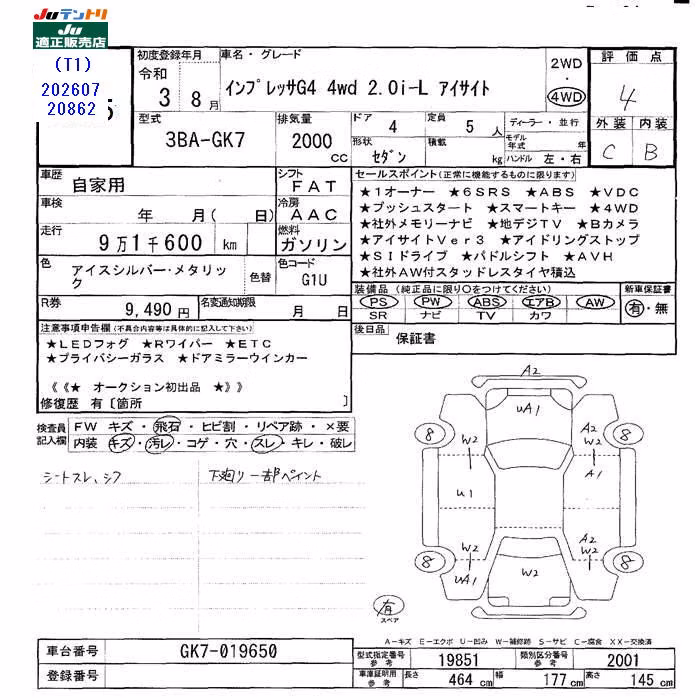 Juテントリ
Ju
適正販売店
(T1)
202607
20862
5
初度登録年月
令和
3 8月
車名・グレード
インプレッサG4 4wd 2.0i-L アイサイト
2WD
・
4WD
評価点
4
外装 内装
C B
型式
3BA-GK7
排気量
2000
cc
ドア 4
定員 5 人
形状 セダン
積載 kg
ディーラー・並行
モデル年式 年
ハンドル 左・右
車歴
自家用
シフト
FAT
車検
年 月( 日)
冷房
AAC
走行
9万1千600 km
燃料
ガソリン
色
アイスシルバー・メタリック
色替
色コード
G1U
R券
9,490円
名変通知期限
月 日
セールスポイント(正常に機能するものに限ります)
★1オーナー ★6SRS ★ABS ★VDC
★プッシュスタート ★スマートキー ★4WD
★社外メモリーナビ ★地デジTV ★Bカメラ
★アイサイトVer3 ★アイドリングストップ
★SIドライブ ★パドルシフト ★AVH
★社外AW付スタッドレスタイヤ積込
装備品(純正品に限り○をつけてください)
PS PW ABS エアB AW
SR ナビ TV カワ
新車保証書
有・無
後日品
保証書
注意事項申告欄(不具合内容等は具体的に記入して下さい)
★LEDフォグ ★Rワイパー ★ETC
★プライバシーガラス ★ドアミラーウインカー
《《★ オークション初出品 ★》》
修復歴 有〔箇所 〕
検査員記入欄
FW キズ・飛石・ヒビ割・リペア跡・×要
内装 キズ・汚レ・コゲ・穴・スレ・キレ・破レ
シートスレ、シワ
下廻り一部ペイント
A2
uA1
8
8
W2
A2
W2
A1
U1
W2
uA1
A2
W2
W2
8
8
有
スペア
A-キズ E-エクボ U-凹み W-補修跡 S-サビ C-腐食 XX-交換済
車台番号
GK7-019650
登録番号
型式指定番号 参考
19851
類別区分番号 参考
2001
車庫証明用 参考
長さ 464 cm
幅 177 cm
高さ 145 cm